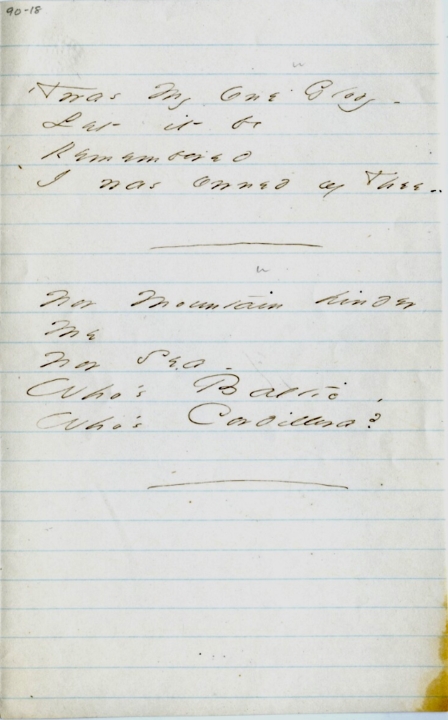 90-18
'Twas my one Glory -
Let it be
Remembered
I was owned of Thee -
Nor Mountain hinder
Me
Nor Sea -
Who's Baltic -
Who's Cordillera?